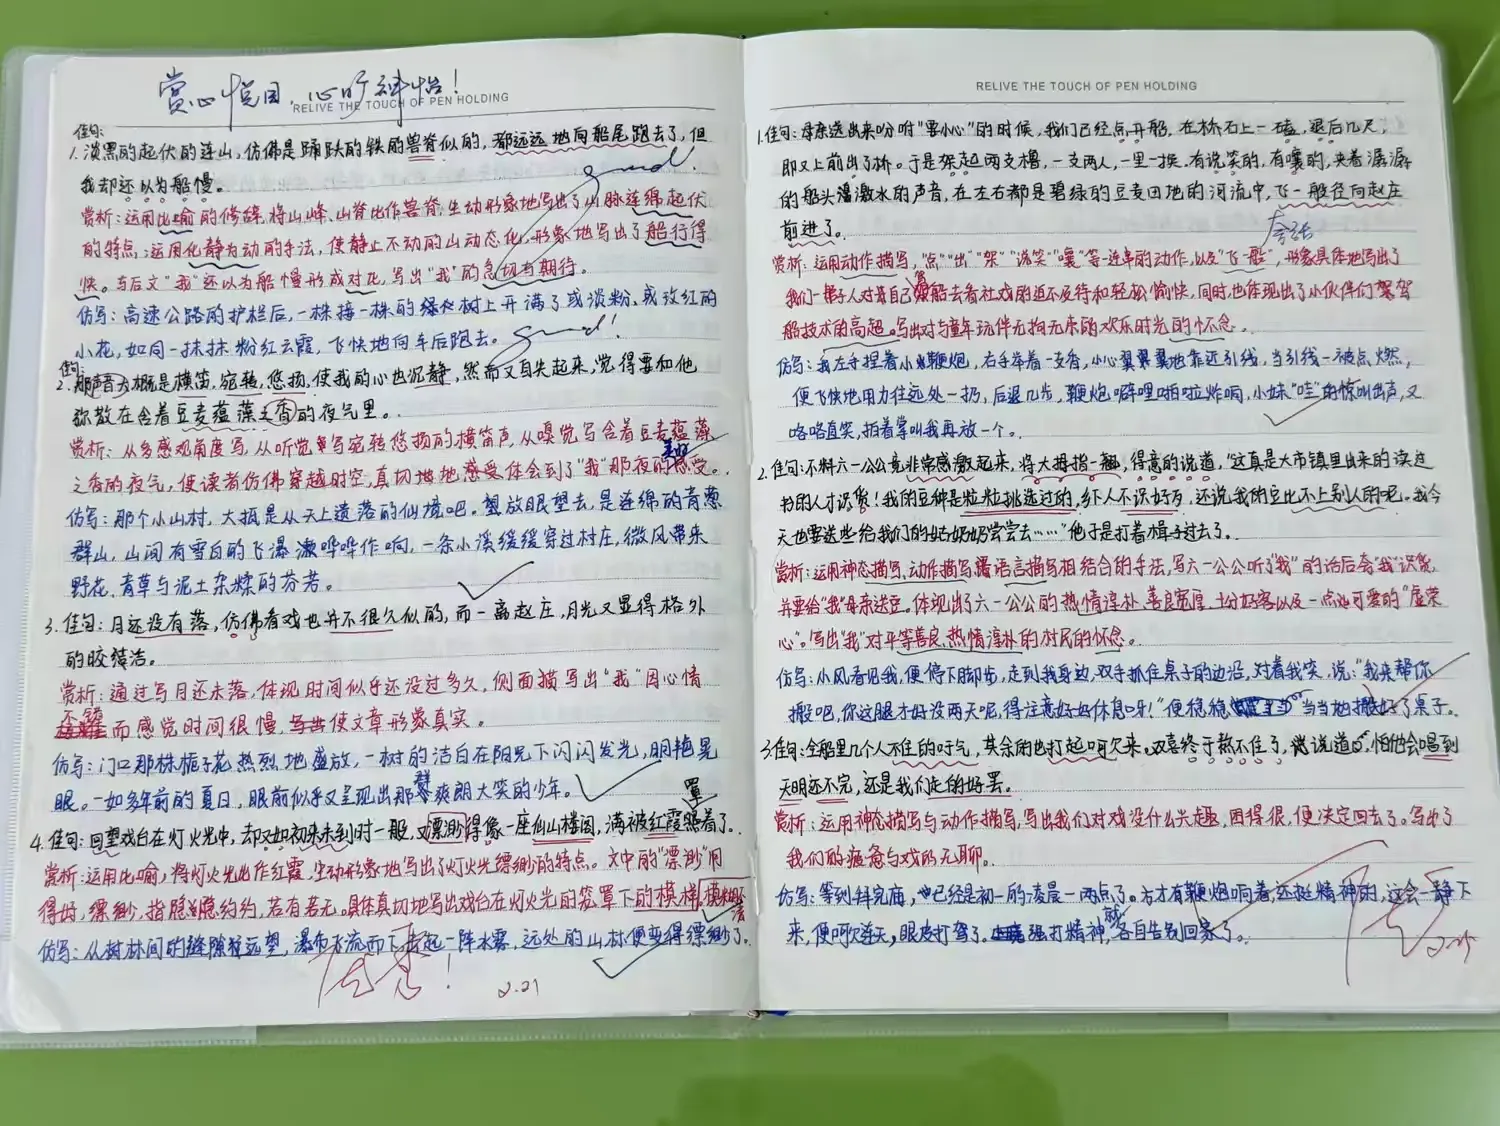 赏心悦目,心旷神怡!
RELIVE THE TOUCH OF PEN HOLDING
佳句:
1. 淡黑的起伏的连山,仿佛是踊跃的铁的兽脊似的,都远远地向船尾跑去了,但
我却还以为船慢。
good!
赏析:运用比喻的修辞,将山峰、山脊比作兽脊,生动形象地写出了山脉连绵起伏
的特点;运用化静为动的手法,使静止不动的山动态化,形象地写出了船行得
快。与后文"我"还以为船慢形成对比,写出"我"的急切与期待。
仿写:高速公路的护栏后,一株接一株的绿树上开满了或淡粉、或玫红的
小花,如同一抹抹粉红云霞,飞快地向车后跑去。
good!
佳句:
2. 那声音大概是横笛,宛转,悠扬,使我的心也沉静,然而又自失起来,觉得要和他
弥散在含着豆麦蕴藻之香的夜气里。
赏析:从多感观角度写,从听觉写宛转悠扬的横笛声,从嗅觉写含着豆麦蕴藻
之香的夜气,使读者仿佛穿越时空,真切地体会到了"我"那夜的感受。
仿写:那个小山村,大抵是从天上遗落的仙境吧。放眼望去,是连绵的青葱
群山,山间有雪白的飞瀑哗哗作响,一条小溪缓缓穿过村庄,微风带来
野花、青草与泥土杂糅的芬芳。
3. 佳句:月还没有落,仿佛看戏也并不很久似的,而一离赵庄,月光又显得格外
的皎洁。
赏析:通过写月还未落,体现时间似乎还没过多久,侧面描写出"我"因心情
而感觉时间很慢,使文章形象真实。
仿写:门口那株栀子花热烈地盛放,一树的洁白在阳光下闪闪发光,明艳晃
眼。一如多年前的夏日,眼前似乎又呈现出那群爽朗大笑的少年。
4. 佳句:回望戏台在灯火光中,却又如初来未到时一般,又漂渺得像一座仙山楼阁,满被红霞罩着了。
赏析:运用比喻,将灯火光比作红霞,生动形象地写出了灯火光缥缈的特点。文中的"漂渺"用
得好,缥缈,指隐隐约约,若有若无。具体真切地写出戏台在灯火光的笼罩下的模样,模糊
仿写:从树林间的缝隙往远望,瀑布飞流而下击起一阵水雾,远处的山村便变得缥缈了。
2.21
RELIVE THE TOUCH OF PEN HOLDING
1. 佳句:母亲送出来吩咐"要小心"的时候,我们已经点开船,在桥石上一磕,退后几尺,
即又上前出了桥。于是架起两支橹,一支两人,一里一换,有说笑的,有嚷的,夹着潺潺
的船头激水的声音,在左右都是碧绿的豆麦田地的河流中,飞一般径向赵庄
前进了。
夸张
赏析:运用动作描写,"点""出""架""说笑""嚷"等一连串的动作,以及"飞一般",形象具体地写出了
我们一群子人对自己驾船去看社戏的迫不及待和轻松愉快,同时,也体现出了小伙伴们驾
船技术的高超。写出对与童年玩伴无拘无束的欢乐时光的怀念。
仿写:我左手捏着小鞭炮,右手举着一支香,小心翼翼地靠近引线,当引线一被点燃,
便飞快地用力往远处一扔,后退几步,鞭炮噼哩啪啦炸响,小妹"哇"的惊叫出声,又
咯咯直笑,拍着掌叫我再放一个。
2. 佳句:不料六一公公竟非常感激起来,将大拇指一翘,得意的说道,"这真是大市镇里出来的读过
书的人才识货!我的豆种是粒粒挑选过的,乡下人不识好歹,还说我的豆比不上别人的呢。我今
天也要送些给我们的姑奶奶尝尝去……"他于是打着楫子过去了。
赏析:运用神态描写、动作描写、语言描写相结合的手法,写六一公公听了"我"的话后夸"我"识货,
并要给"我"母亲送豆。体现出了六一公公的热情淳朴、善良宽厚、十分好客以及一点也可爱的"虚荣
心"。写出"我"对平等善良、热情淳朴的村民的怀念。
仿写:小风看见我,便停下脚步,走到我身边,双手抓住桌子的边沿,对着我笑,说:"我来帮你
搬吧,你这腿才好没两天呢,得注意好好休息呀!"便稳稳当当地搬好了桌子。
3. 佳句:全船里几个人不住的吁气,其余的也打起呵欠来。双喜终于熬不住了,说道,怕他会唱到
天明还不完,还是我们走的好罢。
赏析:运用神态描写与动作描写,写出我们对戏没什么兴趣,困得很,便决定回去了。写出了
我们的疲惫与戏的无聊。
仿写:等到拜完庙,已经是初一的凌晨一两点了。方才有鞭炮响着,还挺精神的,这会一静下
来,便呵欠连天,眼皮打驾了。强打精神,各自告别回家了。